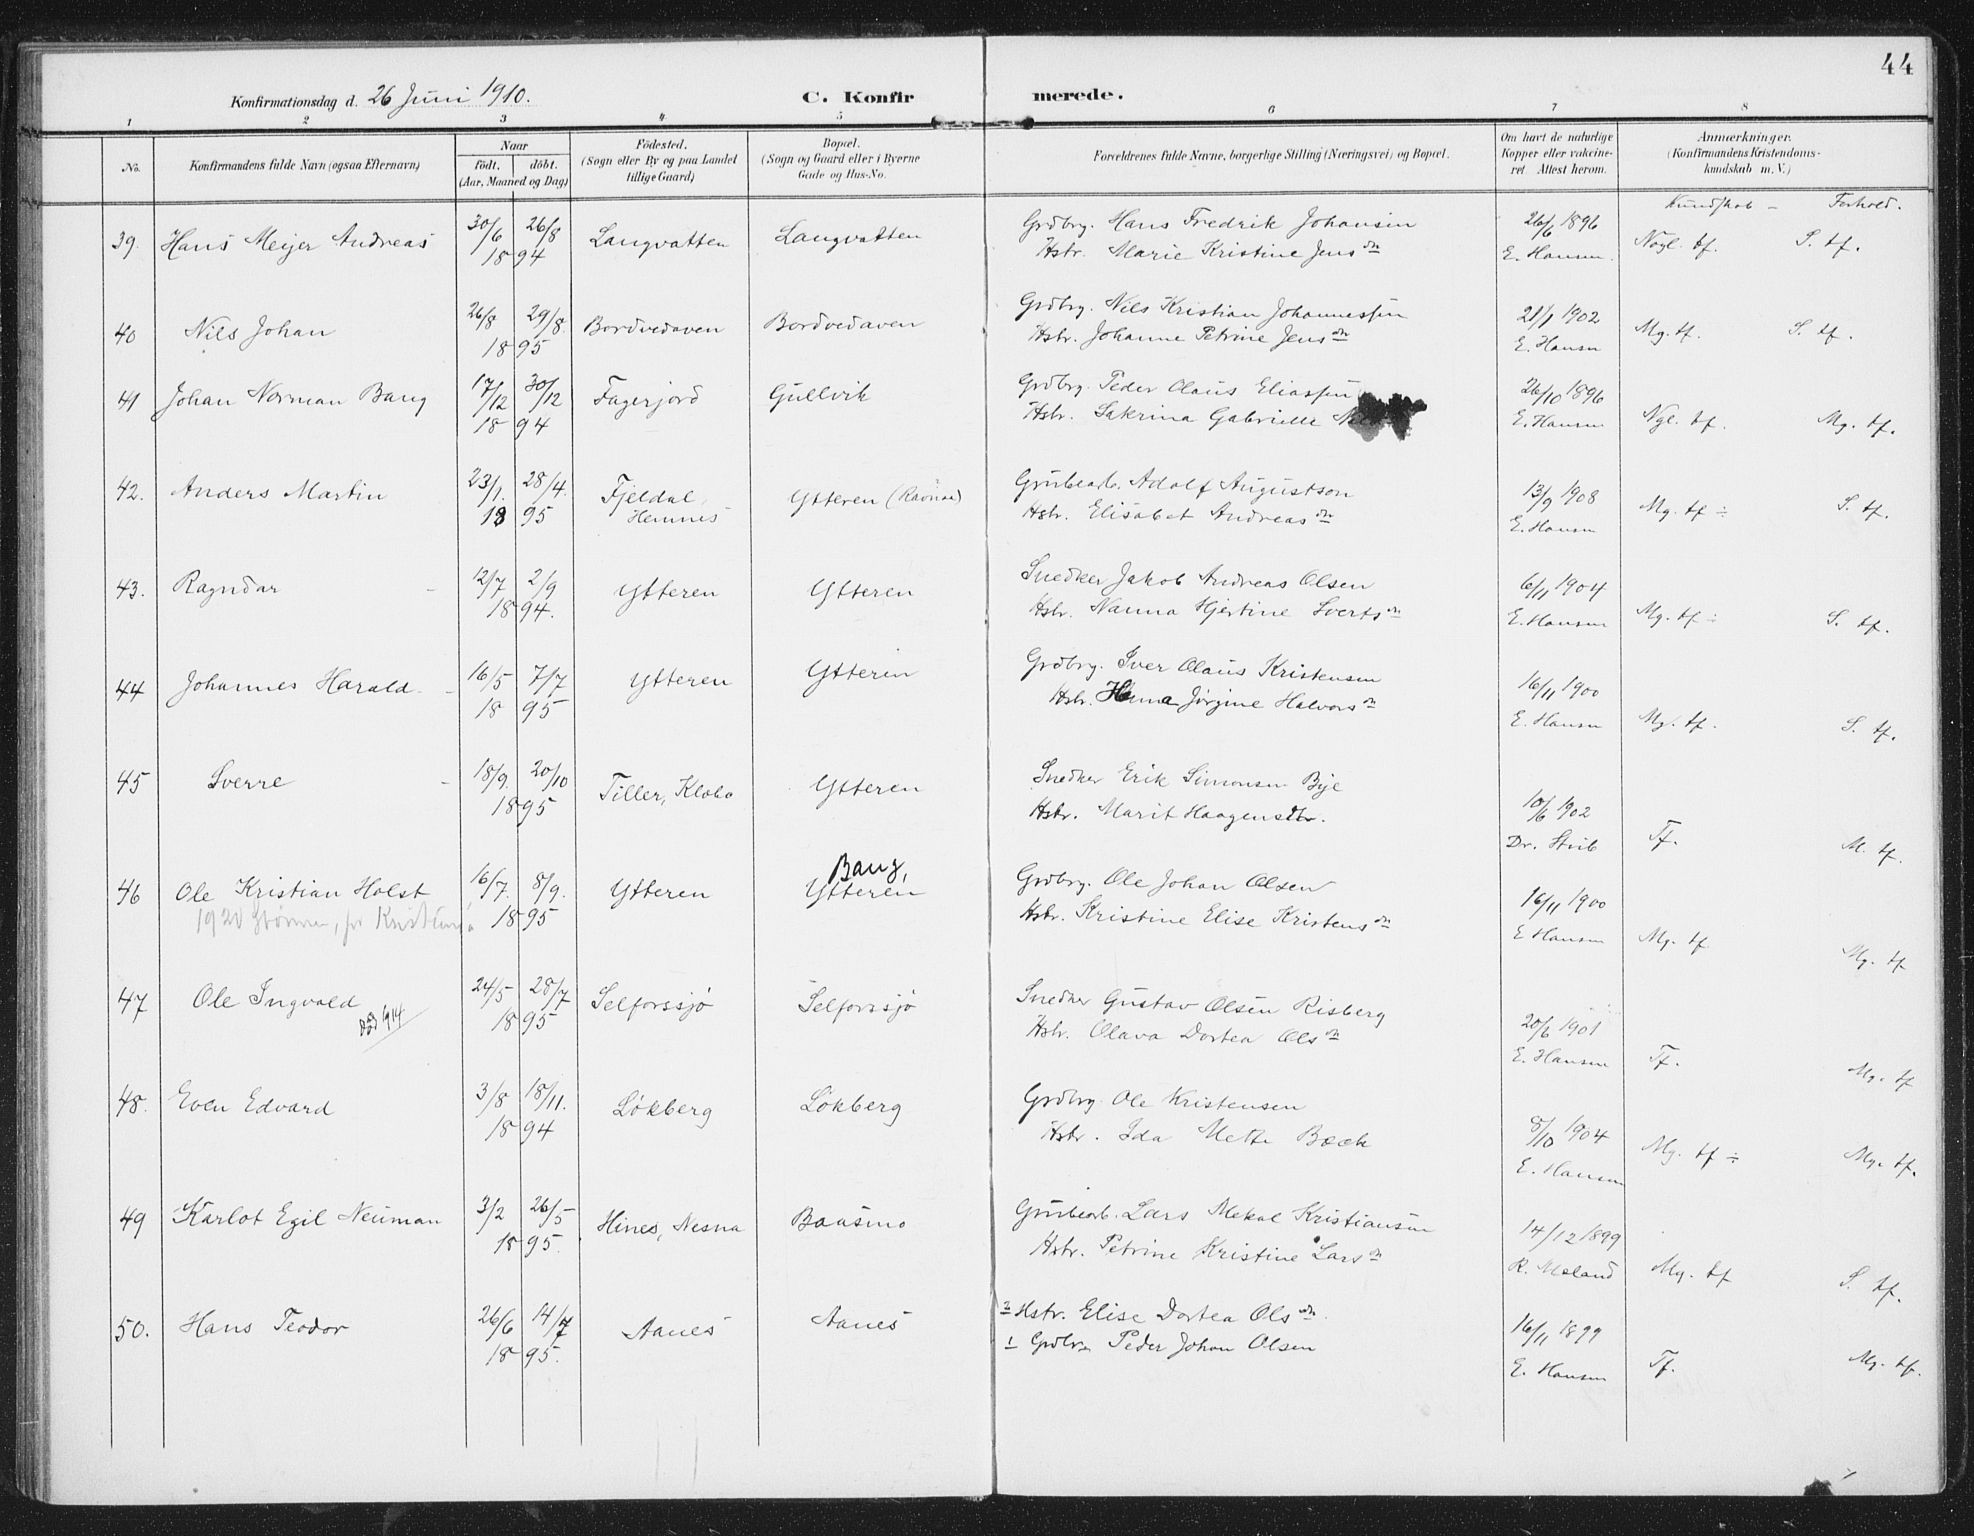 44
Konfirmationsdag d. 26 Juni 1910. C. Konfirmerede.
1 2 3 4 5 6 7 8
No. Konfirmandens fulde Navn (ogsaa Efternavn) Naar født, døbt. (Aar, Maaned og Dag) Födested. (Sogn eller By og paa Landet tillige Gaard) Bopæl. (Sogn og Gaard eller i Byerne Gade og Hus-No. Forældrenes fulde Navne, borgerlige Stilling (Næringsvei) og Bopæl. Om havt de naturlige Kopper eller vakcineret Attest herom. Anmærkninger. (Konfirmandens Kristendomskundskab m. V.)
Kundskab – Forhold.
39. Hans Meijer Andreas 30/6 26/8 Langvatten Langvatten Grdbr. Hans Fredrik Johansen 26/6 1896 Nogl. tf. S. tf.
18 94 Hstr. Marie Kristine Jens dn E. Hansen.
40 Nils Johan 26/8 29/8. Bordvedaven Bordvedaven Grdbr. Nils Kristian Johannessen 21/1 1902 Mg. tf. S. tf.
18 95 Hstr. Johanne Petrine Jens dn E. Hansen
41 Johan Norman Bang 17/12 30/12 Fagerjord Gullvik Grdbr. Peder Olaus Eliassen 26/10 1896
18 94 Hstr. Sakrina Gabrielle E. Hansen Ngl. tf. Mg. tf.
42. Anders Martin 23/1. 28/4. Fjeldal, Ytteren Grubearb. Adolf Augustson 13/9 1908 Mg. tf ÷ S. tf.
18 95 Hemnes Hstr. Elisabet Andreas dn E. Hansen
43. Ragndar 12/7 2/9 Ytteren Ytteren Snedker Jakob Andreas Olsen 6/11 1904
18 94. Hstr. Nanna Hjertine Sverts dn E. Hansen Mg. tf ÷ S. tf.
44 Johannes Harald. 16/5 7/7 Ytteren Ytteren Grdbr. Iver Olaus Kristensen 16/11 1900
18 95 Hstr. Jørgine Halvors dn E. Hansen Mg. tf. S. tf.
45 Sverre 18/9. 20/10 Tiller, Klæbo Ytteren Snedker Erik Simonsen Bye 10/6 1902
18 95 Hstr. Marit Haagensdtr. Dr. Stub Tf. M. tf.
Bang,
46 Ole Kristian Holst 16/7. 8/9. Ytteren Ytteren Grdbr. Ole Johan Olsen 16/11 1900
1920 18 95 Hstr. Kristine Elise Kristens dn E Hansen Mg. tf Mg. tf
47 Ole Ingvald 24/5 28/7 Selforssjø Selforssjø Snedker Gustav Olsen Risberg 20/6 1901
død 1914 18 95 Hstr. Olava Dortea Ols dn E. Hansen Tf. Mg. tf
48. Even Edvard 3/8 18/11. Løkberg Løkberg Grdbr. Ole Kristensen 8/10 1904
18 94 Hstr. Ida Mette Bæck E. Hansen Mg. tf ÷ Mg. tf.
49 Karlot Egil Neuman 3/2 26/5 Hines, Nesna Baasmo Grubearb. Lars Mekal Kristiansen 14/12 1899
18 95. Hstr. Petrine Kristine Lars dn R. Meland Mg. tf S. tf.
50. Hans Teodor 26/6 14/7 Aanes Aanes 2 Hstr. Elise Dortea Ols dn. 16/11 1899
18 95. 1 Grdbr. Peder Johan Olsen E. Hansen Tf. Mg. tf.